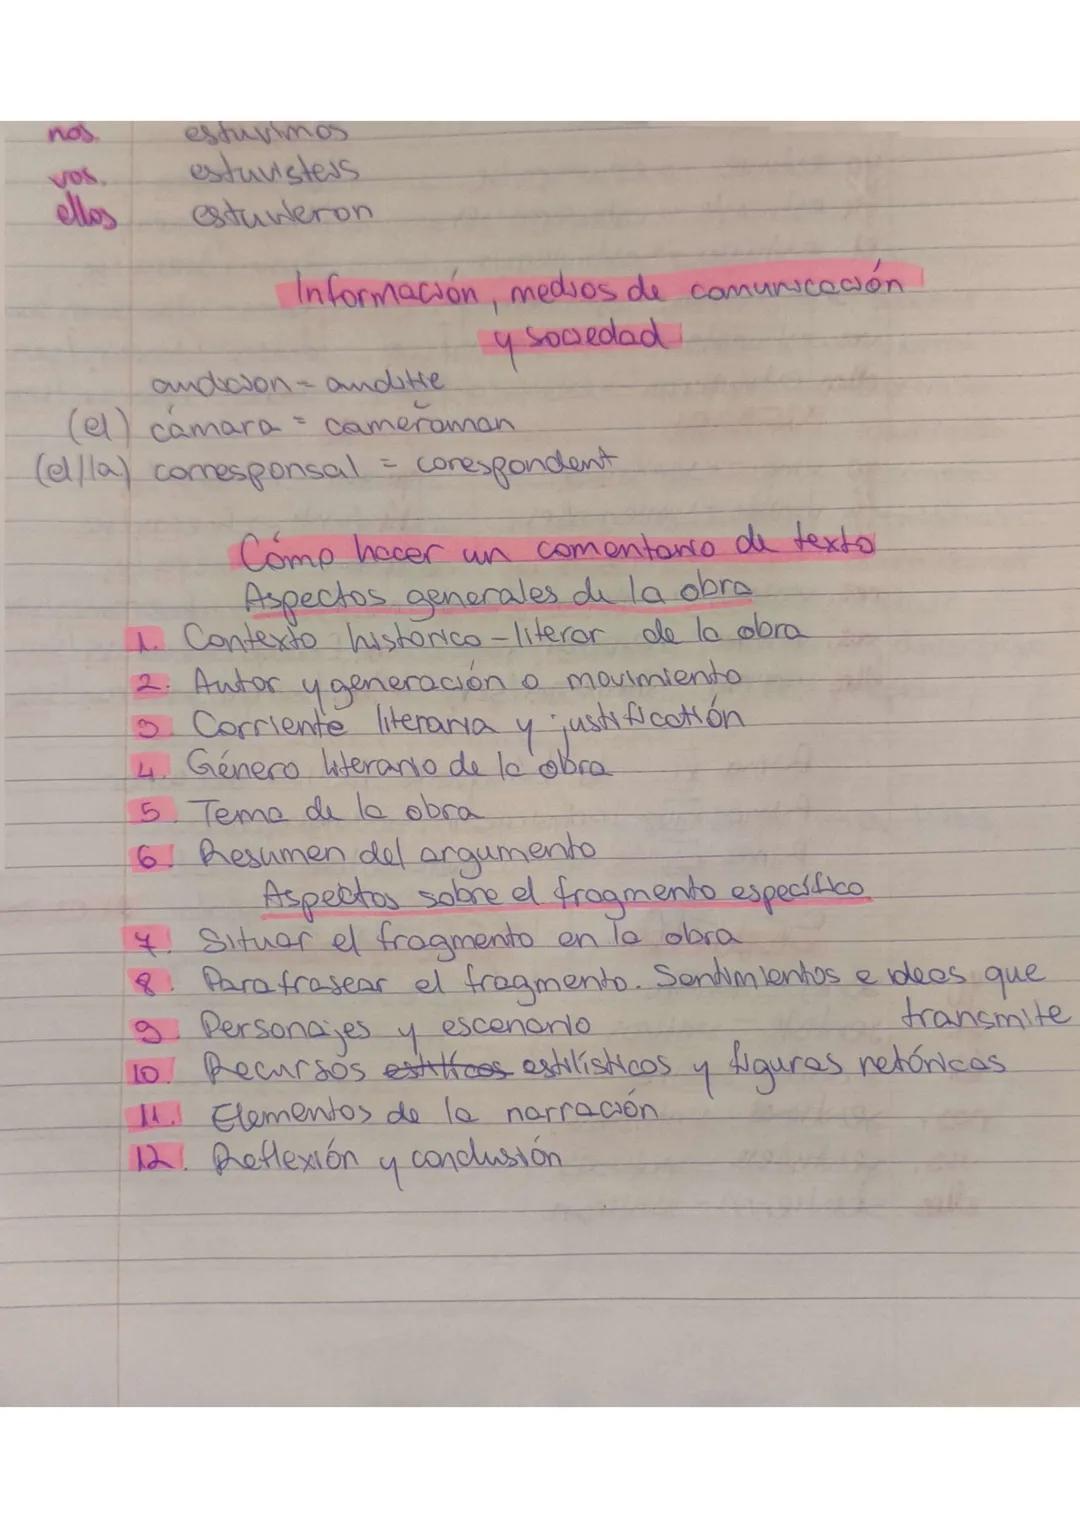 nos. estuvimos
vos. estuvisteis
ellos estuvieron
Información, medios de comunicación
y sociedad
audicion = auditie
(el) cámara = cameraman
(el/la) corresponsal = corespondent
Cómo hacer un comentario de texto
Aspectos generales de la obra
1. Contexto historico-literar de la obra
2. Autor y generación o movimiento
3 Corriente literaria y justificatión
4. Género literario de la obra
5. Tema de la obra
6. Resumen del argumento
Aspectos sobre el fragmento específico
7. Situar el fragmento en la obra
8. Parafrasear el fragmento. Sentimientos e ideas que
transmite
9 Personajes y escenario
10. Recursos estilisticos y figuras retóricas
11. Elementos de la narración
12. Reflexión y conclusión